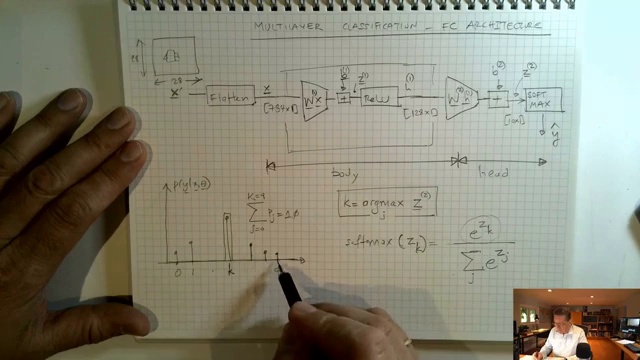 MULTILAYER CLASSIFICATION - FC ARCHITECTURE
28
28
X
Flatten
x
[784x1]
W⁽¹⁾x
+
b⁽¹⁾
z⁽¹⁾
ReLU
h⁽¹⁾
[128x1]
W⁽²⁾h⁽¹⁾
+
b⁽²⁾
z⁽²⁾
[10x1]
SOFT
MAX
ŷ
body
head
p(y|x,θ)
K=9
Σ Pj = 1.0
j=0
0 1 . k
K = argmax z⁽²⁾
j
softmax (z_k) = e^{z_k}
Σ e^{z_j}
j